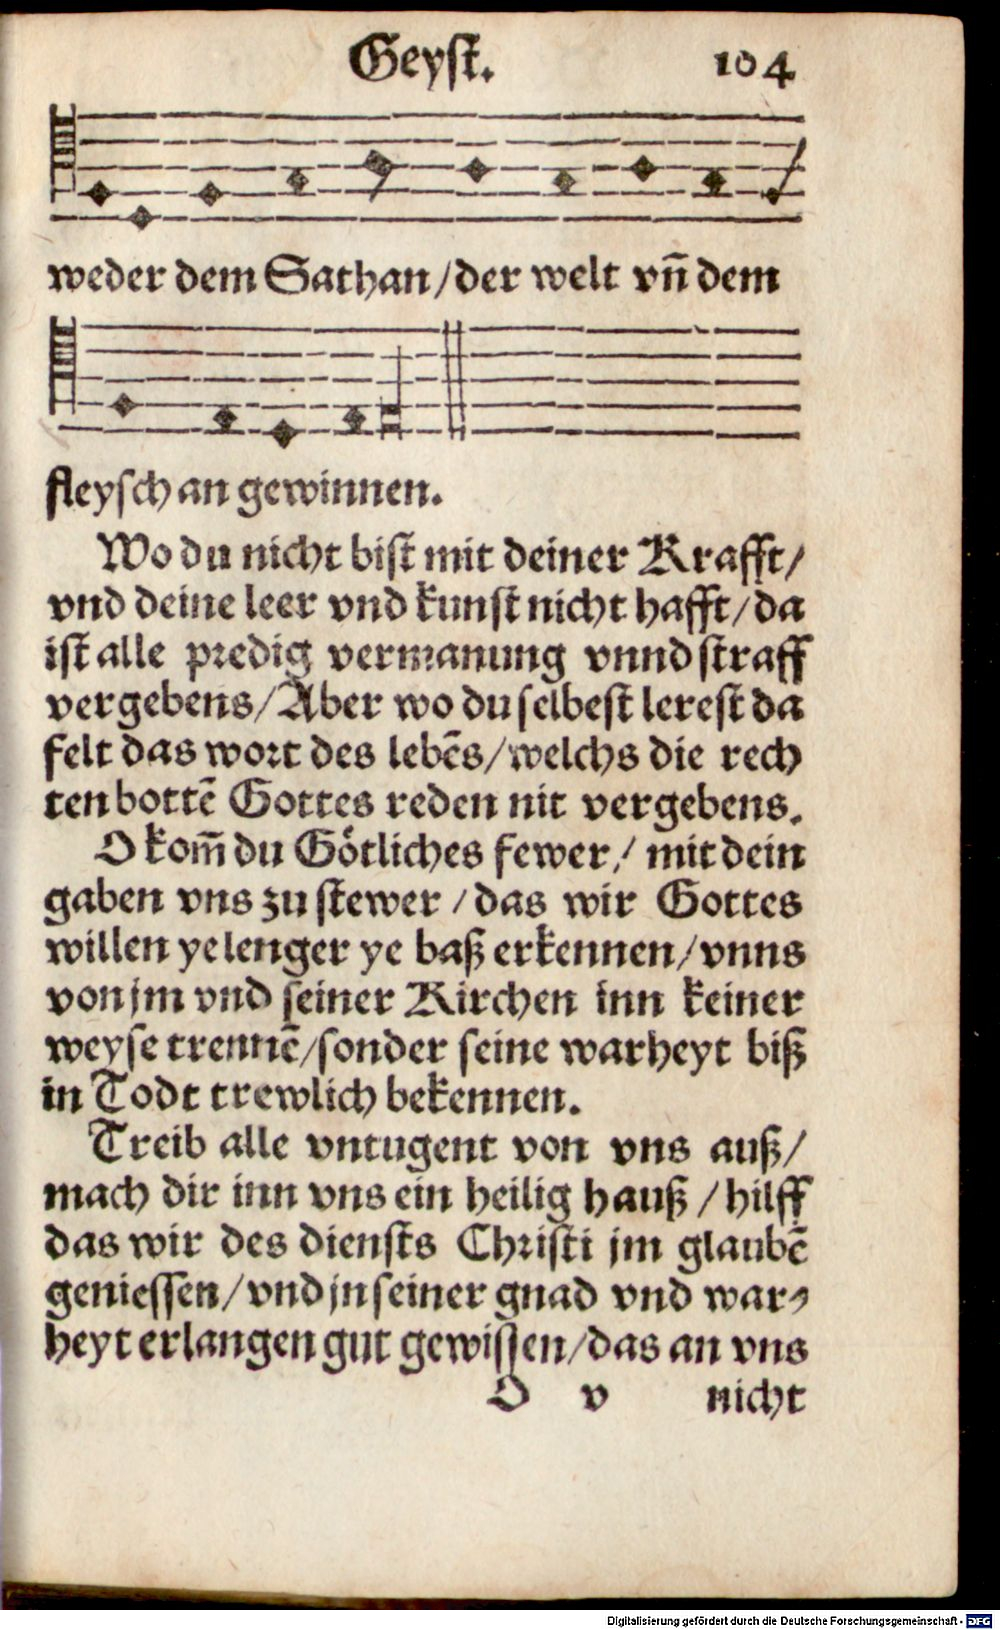 Geyſt. 104
weder dem Sathan/der welt vñ dem
fleyſch an gewinnen.
Wo du nicht biſt mit deiner Krafft/
vnd deine leer vnd kunſt nicht hafft/da
iſt alle predig vermanung vnnd ſtraff
vergebens/Aber wo du ſelbeſt lereſt da
felt das wort des lebēs/welchs die rech
ten bottē Gottes reden nit vergebens.
O kom̄ du Götliches fewer/ mit dein
gaben vns zu ſtewer/das wir Gottes
willen ye lenger ye baß erkennen/vnns
von jm vnd ſeiner Kirchen inn keiner
weyſe trennē/ſonder ſeine warheyt biß
in Todt trewlich bekennen.
Treib alle vntugent von vns auß/
mach dir inn vns ein heilig hauß/hilff
das wir des dienſts Chriſti jm glaubē
genieſſen/vnd jn ſeiner gnad vnd war⸗
heyt erlangen gut gewiſſen/das an vns
O v nicht
Digitalisierung gefördert durch die Deutsche Forschungsgemeinschaft - DFG